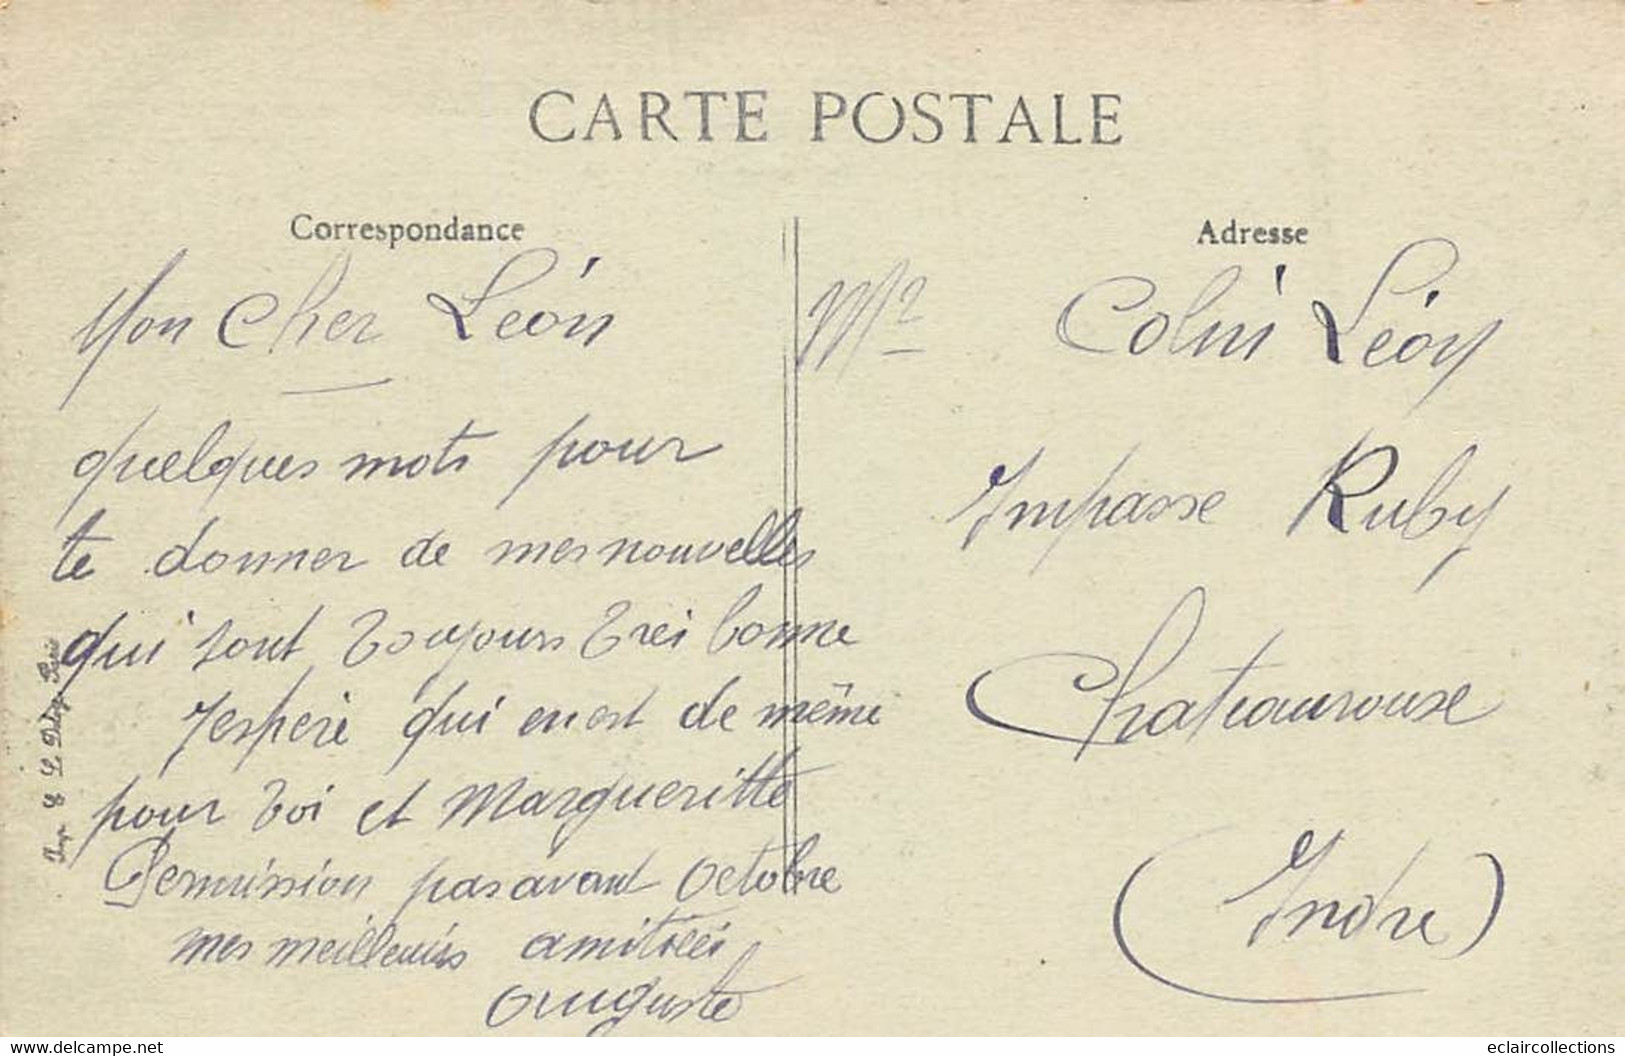 CARTE POSTALE
Correspondance
Mon Cher Léon
quelques mots pour
te donner de mes nouvelles
qui sont toujours très bonne
J'espère qui en est de même
pour toi et Margueritte
Permission pas avant Octobre
mes meilleurs amitiées
Auguste
Adresse
Mr Colin Léon
Impasse Ruby
Chateauroux
(Indre)
www.delcampe.net
eclaircollections